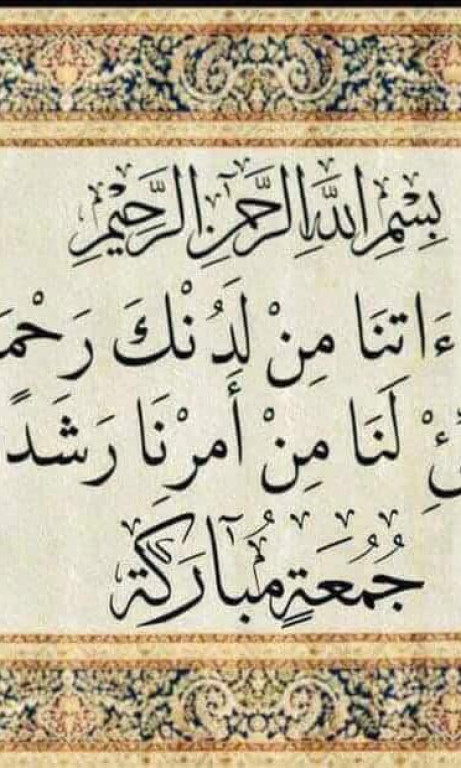 بِسْمِ اللَّهِ الرَّحْمَٰنِ الرَّحِيْمِ
ءَاتِنَا مِنْ لَدُنْكَ
لَنَا مِنْ أَمْرِنَا
جُمُعَةٍ مُبَارَكَة